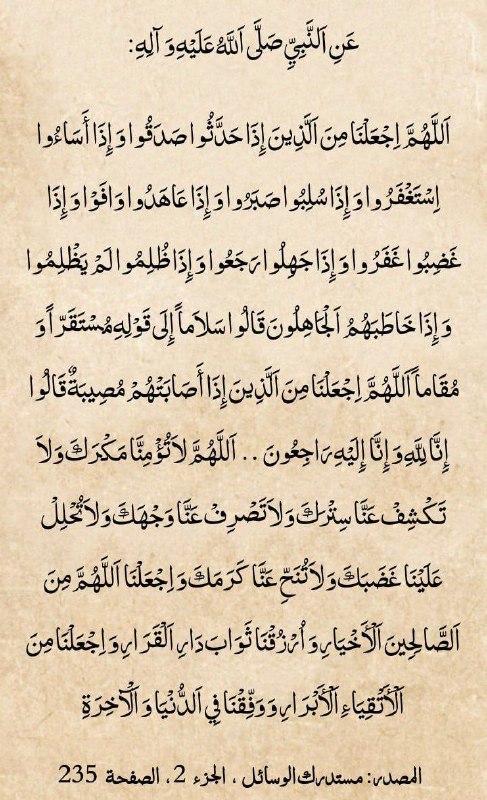 عَنِ اَلنَّبِيِّ صَلَّى اَللَّهُ عَلَيْهِ وَ آلِهِ:
اَللَّهُمَّ اِجْعَلْنَا مِنَ اَلَّذِينَ إِذَا حَدَّثُوا صَدَقُوا وَ إِذَا أَسَاءُوا
اِسْتَغْفَرُوا وَ إِذَا سُلِبُوا صَبَرُوا وَ إِذَا عَاهَدُوا وَافَوْا وَ إِذَا
غَضِبُوا غَفَرُوا وَ إِذَا جَهِلُوا رَجَعُوا وَ إِذَا ظُلِمُوا لَمْ يَظْلِمُوا
وَ إِذَا خَاطَبَهُمُ اَلْجَاهِلُونَ قَالُوا سَلاَماً إِلَى قَوْلِهِ مُسْتَقَرّاً وَ
مُقَاماً اَللَّهُمَّ اِجْعَلْنَا مِنَ اَلَّذِينَ إِذَا أَصَابَتْهُمْ مُصِيبَةٌ قَالُوا
إِنَّا لِلَّهِ وَ إِنَّا إِلَيْهِ رَاجِعُونَ .. اَللَّهُمَّ لاَ تُؤْمِنَّا مَكْرَكَ وَ لاَ
تَكْشِفْ عَنَّا سِتْرَكَ وَ لاَ تَصْرِفْ عَنَّا وَجْهَكَ وَ لاَ تُحْلِلْ
عَلَيْنَا غَضَبَكَ وَ لاَ تُنَحِّ عَنَّا كَرَمَكَ وَ اِجْعَلْنَا اَللَّهُمَّ مِنَ
اَلصَّالِحِينَ اَلْأَخْيَارِ وَ اُرْزُقْنَا ثَوَابَ دَارِ اَلْقَرَارِ وَ اِجْعَلْنَا مِنَ
اَلْأَتْقِيَاءِ اَلْأَبْرَارِ وَ وَفِّقْنَا فِي اَلدُّنْيَا وَ اَلْآخِرَةِ
المصدر: مستدرك الوسائل ، الجزء 2 ، الصفحة 235